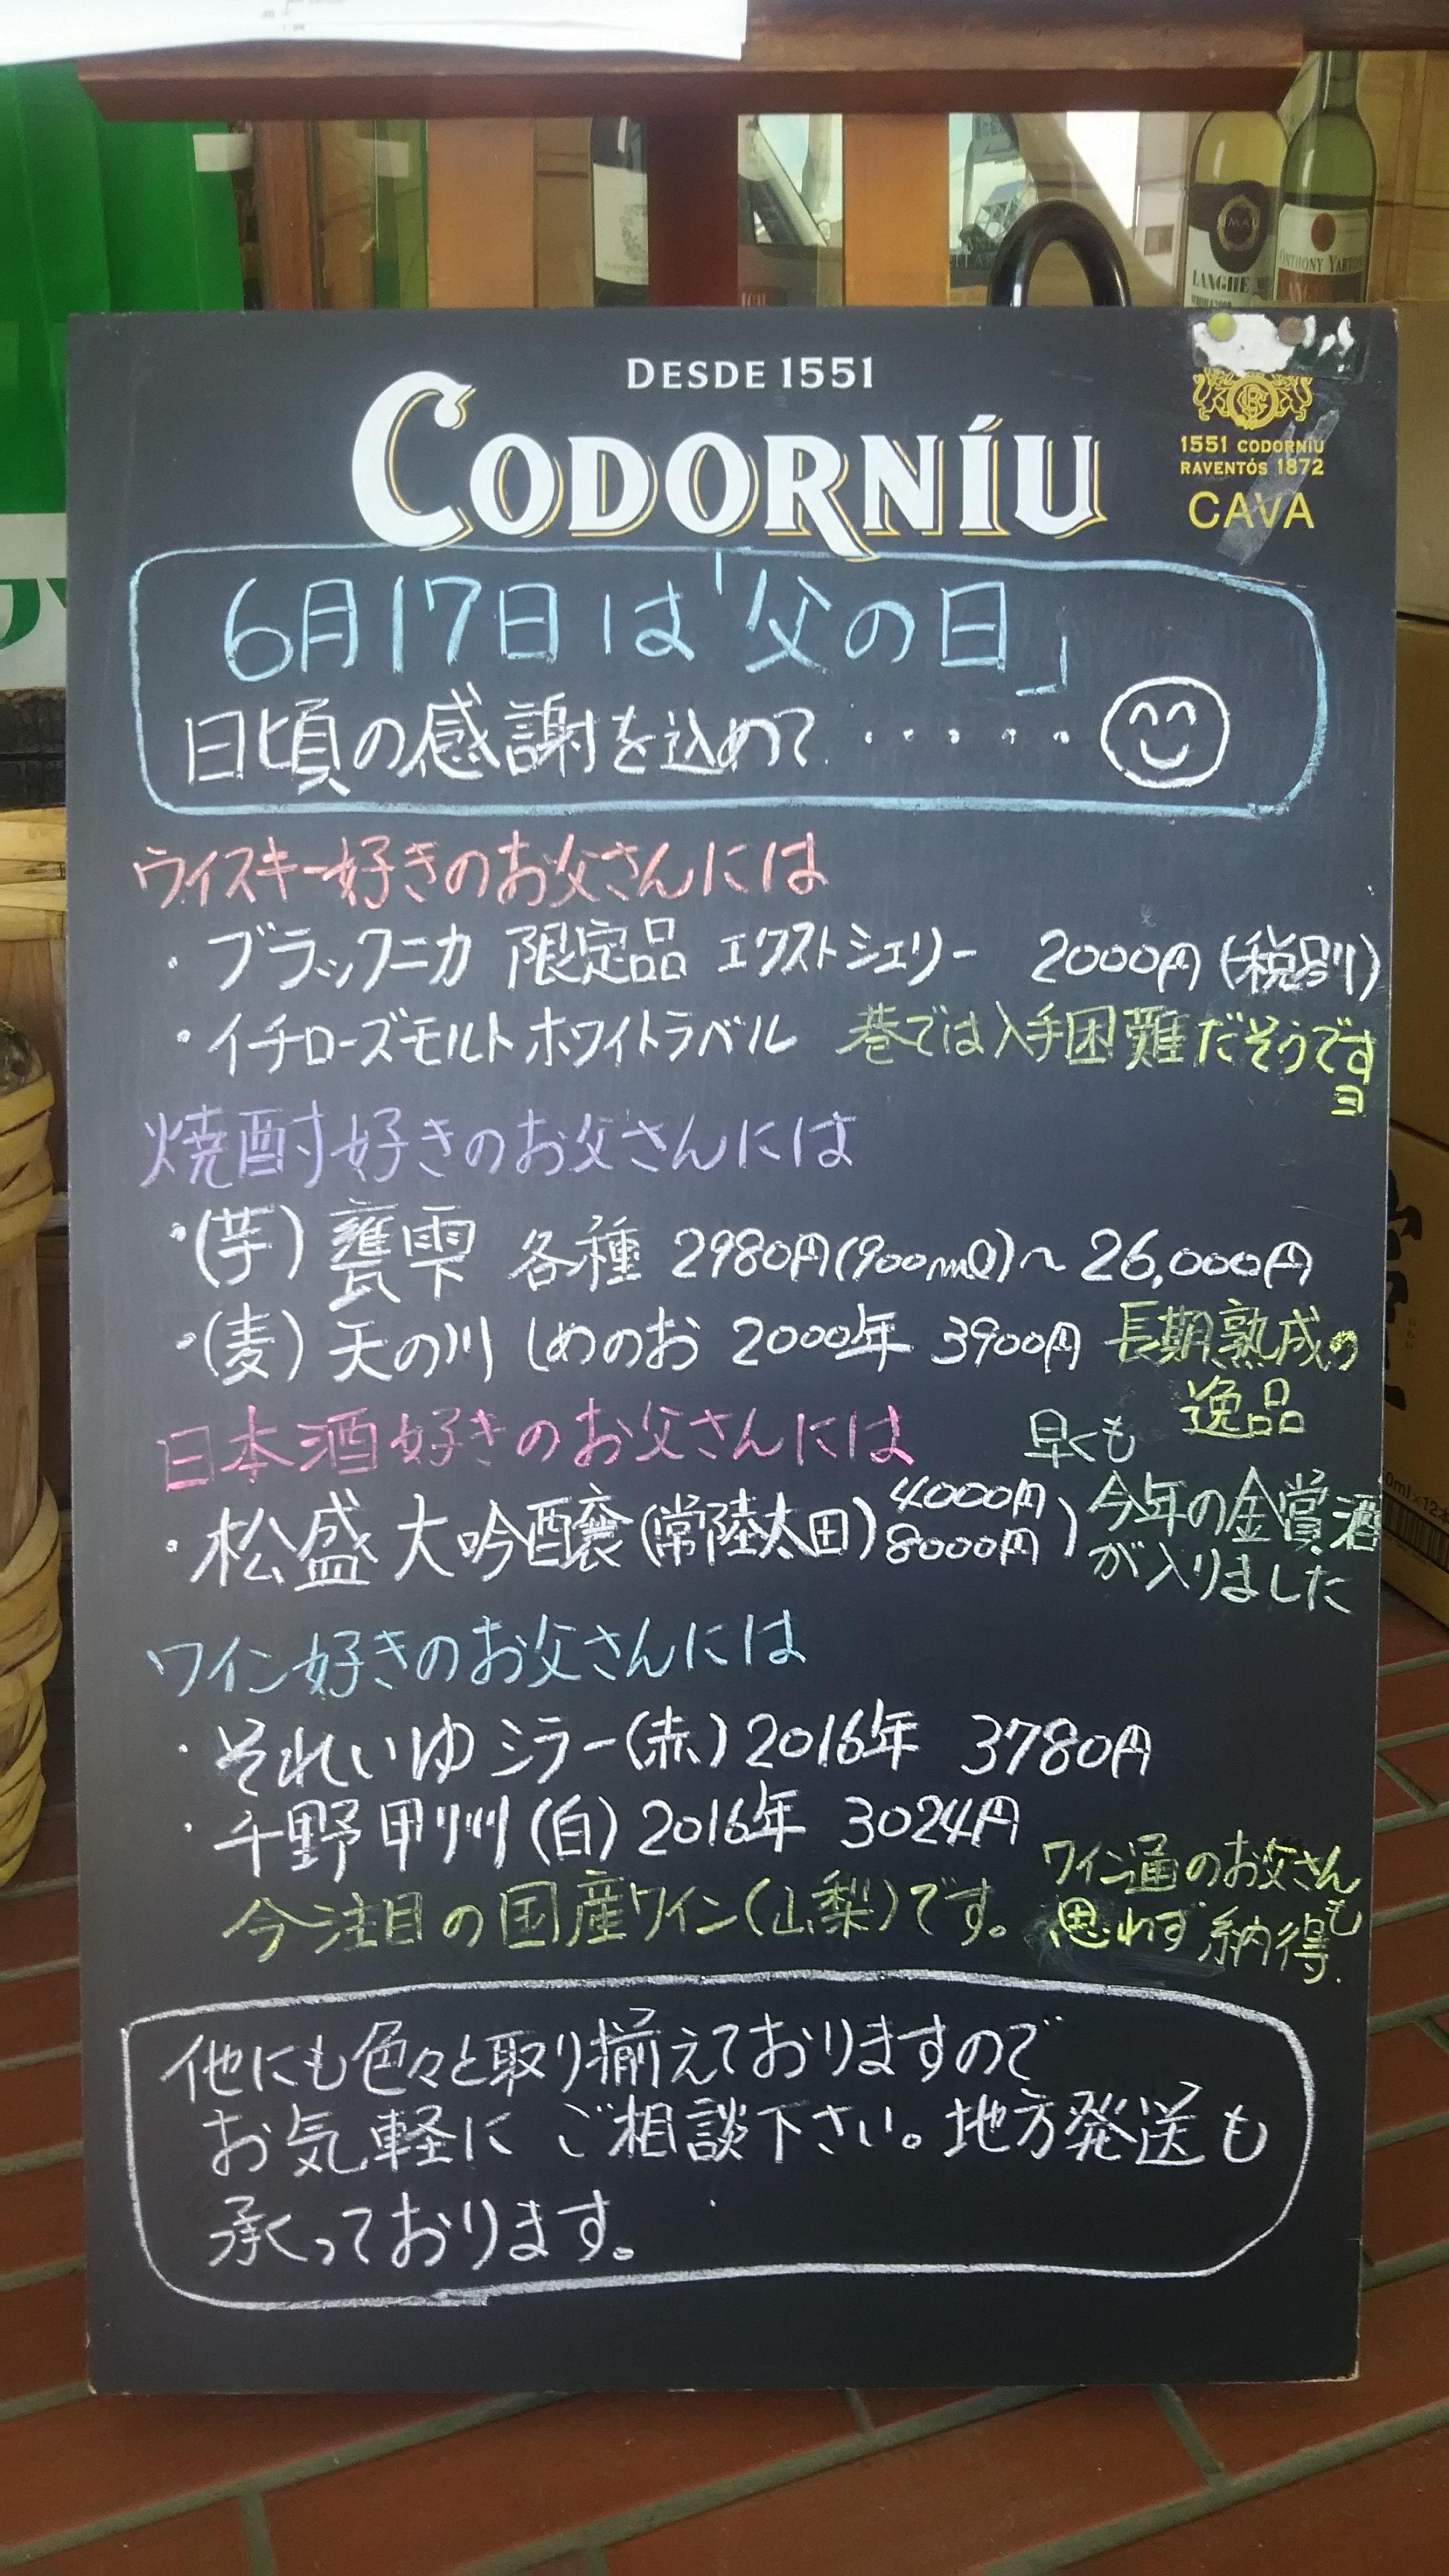 LANGHE
ANTHONY
DESDE 1551
CODORNÍU
1551 CODORNÍU
RAVENTÓS 1872
CAVA
6月17日は「父の日」
日頃の感謝を込めて・・・・・・
ウイスキー好きのお父さんには
・ブラックニカ 限定品 エクストシェリー 2000円(税別)
・イチローズモルトホワイトラベル 巷では入手困難だそうです
ヨ
焼酎好きのお父さんには
・(芋) 甕雫 各種 2980円(900ml)〜26,000円
・(麦) 天の川 しめのお 2000年 3900円 長期熟成の
逸品
日本酒好きのお父さんには
・松盛 大吟醸(常陸太田) 4000円
8000円)
早くも
今年の金賞酒
が入りました
ワイン好きのお父さんには
・それいゆ シラー(赤) 2016年 3780円
・千野甲州(白) 2016年 3024円
今注目の国産ワイン(山梨)です。
ワイン通のお父さんも
思わず納得.
他にも色々と取り揃えておりますので
お気軽に ご相談下さい。地方発送も
承っております。